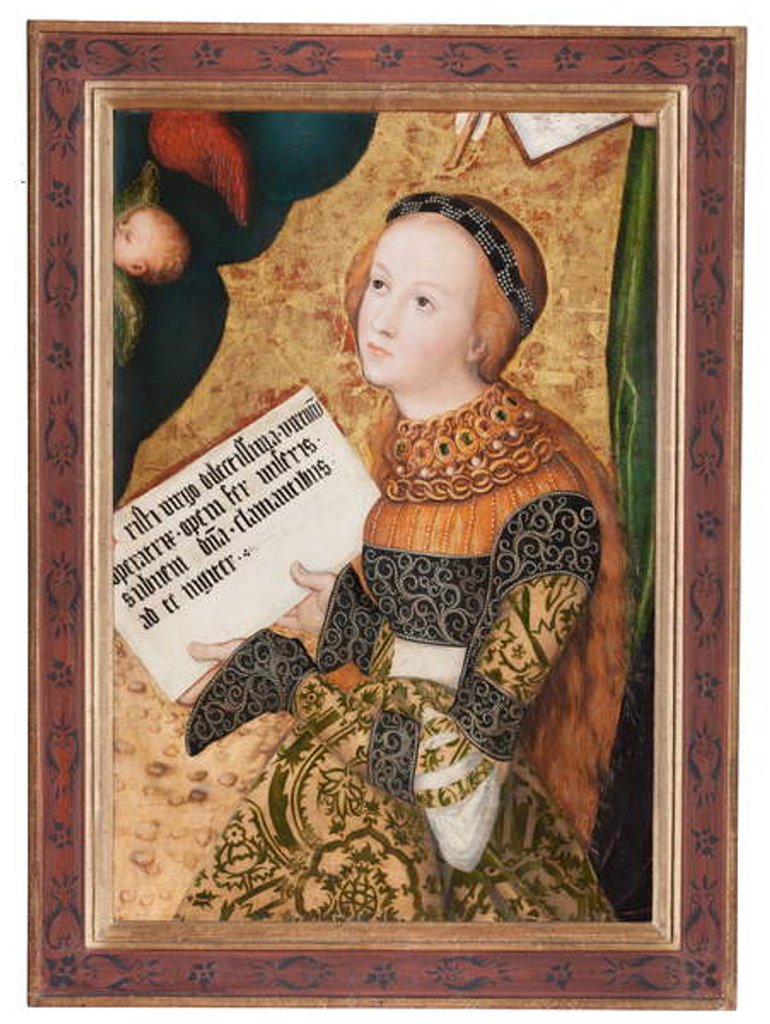 risti virgo dulcissima · virtutū
operatrix · opem fer miseris ·
subueni dña · clamantibus
ad te iugiter ·